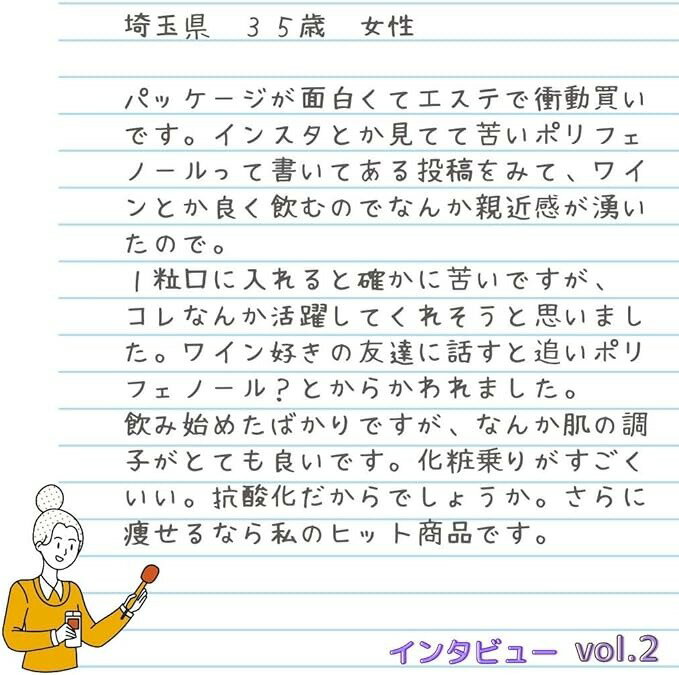 埼玉県　３５歳　女性
パッケージが面白くてエステで衝動買い
です。インスタとか見てて苦いポリフェ
ノールって書いてある投稿をみて、ワイ
ンとか良く飲むのでなんか親近感が湧い
たので。
１粒口に入れると確かに苦いですが、
コレなんか活躍してくれそうと思いまし
た。ワイン好きの友達に話すと追いポリ
フェノール？とからかわれました。
飲み始めたばかりですが、なんか肌の調
子がとても良いです。化粧乗りがすごく
いい。抗酸化だからでしょうか。さらに
痩せるなら私のヒット商品です。
インタビュー vol.2